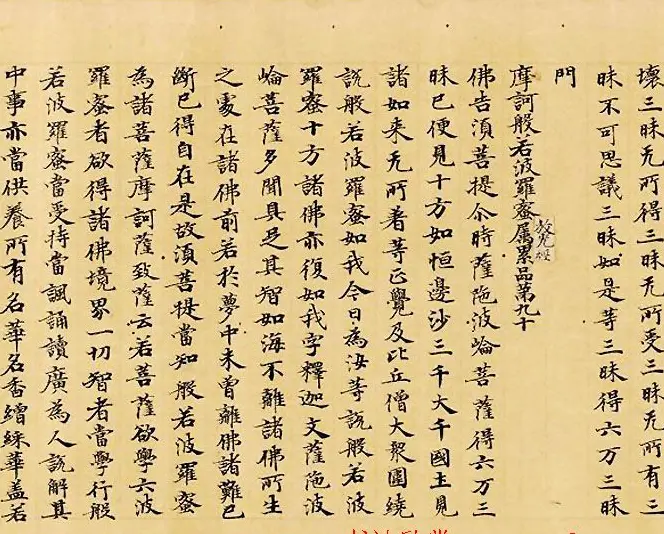 壞三昧无所得三昧无所受三昧无所有三
昧不可思議三昧如是等三昧得六万三昧
門
摩訶般若波羅蜜属累品第九十
放光經
佛告湏菩提尒時薩陁波崘菩薩得六万三
昧已便見十方如恒邊沙三千大千國土見
諸如来无所著等正覺及比丘僧大衆圍繞
說般若波羅蜜如我今日為汝等說般若波
羅蜜十方諸佛亦復如我字釋迦文薩陁波
崘菩薩多聞具足其智如海不離諸佛所生
之處在諸佛前若於夢中未曾離佛諸難已
斷已得自在是故湏菩提當知般若波羅蜜
為諸菩薩摩訶薩致薩云若菩薩欲學六波
羅蜜者欲得諸佛境界一切智者當學行般
若波羅蜜當受持當諷誦讀廣為人說解其
中事亦當供養所有名華名香繒綵華盖若